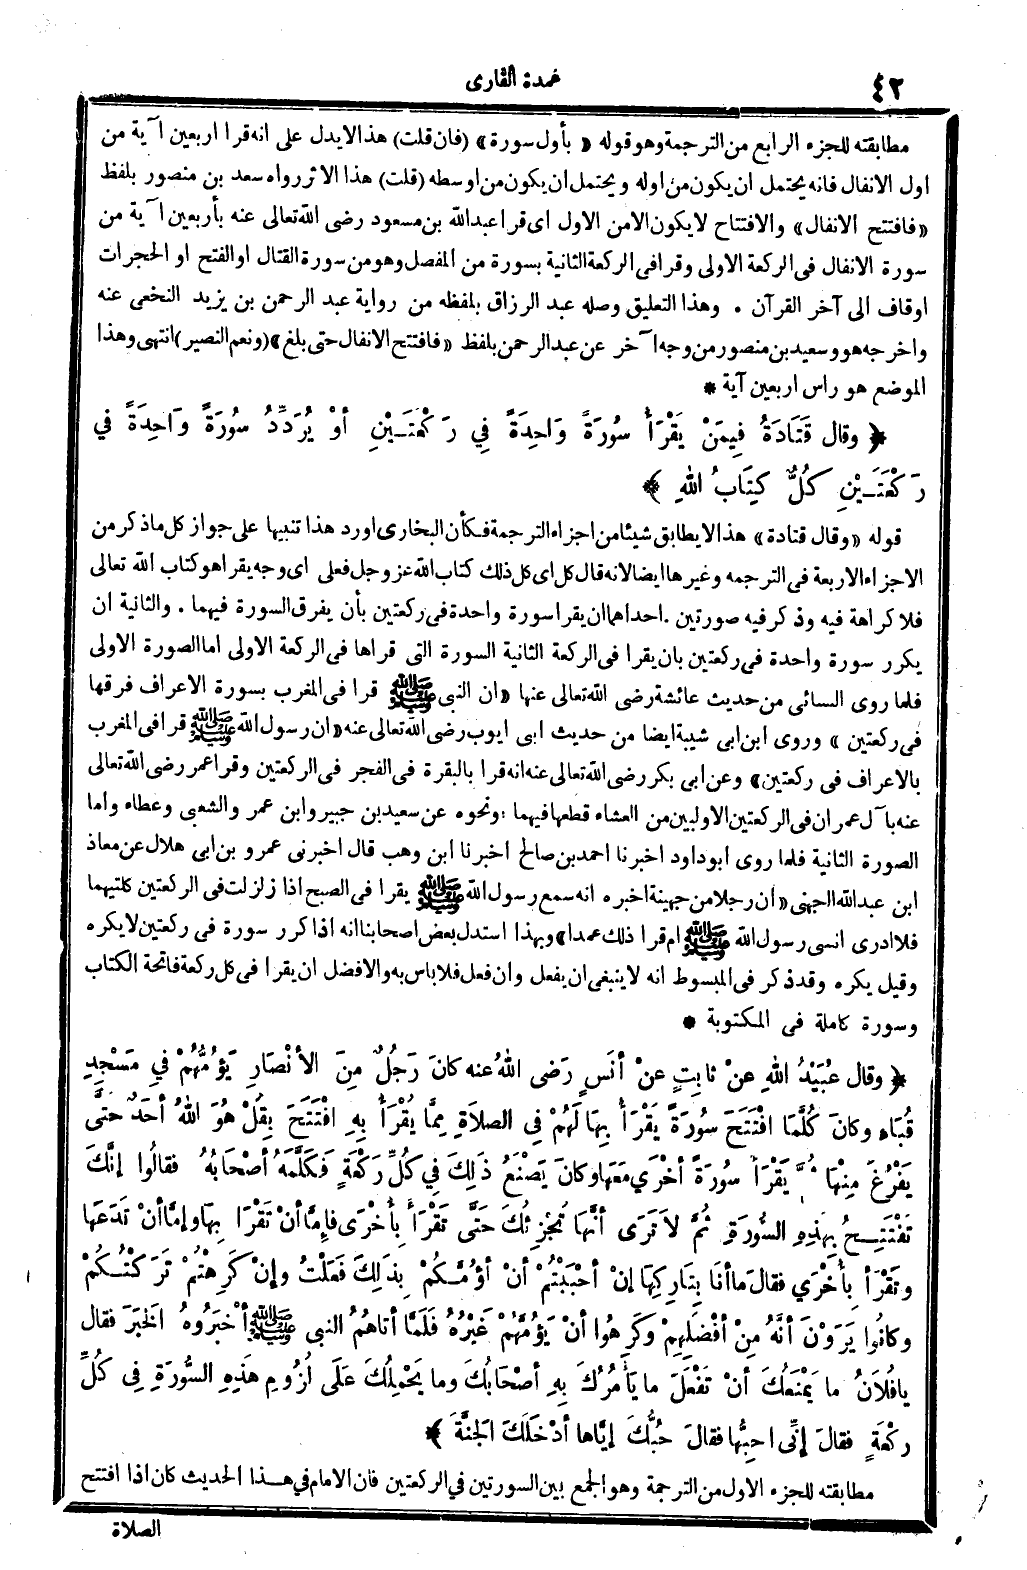 ٤٢
عمدة القارى
مطابقته للجزء الرابع من الترجمة وهو قوله «بأول سورة» (فان قلت) هذا لا يدل على انه قرا اربعين آية من
اول الانفال فانه يحتمل ان يكون من اوله ويحتمل ان يكون من اوسطه (قلت) هذا الاثر رواه سعد بن منصور بلفظ
«فافتتح الانفال» والافتتاح لا يكون الا من الاول اى قرا عبد الله بن مسعود رضى الله تعالى عنه بأربعين آية من
سورة الانفال فى الركعة الاولى وقرا فى الركعة الثانية بسورة من المفصل وهو من سورة القتال او الفتح او الحجرات
اوقاف الى آخر القرآن . وهذا التعليق وصله عبد الرزاق بلفظه من رواية عبد الرحمن بن يزيد النخعى عنه
واخرجه هو وسعيد بن منصور من وجه آخر عن عبد الرحمن بلفظ «فافتتح الانفال حتى بلغ» (ونعم النصير) انتهى وهذا
الموضع هو راس اربعين آية *
﴿ وقال قَتَادَةُ فِيمَنْ يَقْرَأُ سُورَةً وَاحِدَةً فِي رَكْعَتَـيْنِ أوْ يُرَدِّدُ سُورَةً وَاحِدَةً في
رَكْعَتَـيْنِ كُلٌّ كِتَابُ اللهِ ﴾
قوله «وقال قتادة» هذا لا يطابق شيئا من اجزاء الترجمة فكأن البخارى اورد هذا تنبيها على جواز كل ما ذكر من
الاجزاء الاربعة فى الترجمه وغيرها ايضا لانه قال كل اى كل ذلك كتاب الله عز وجل فعلى اى وجه يقرا هو كتاب الله تعالى
فلا كراهة فيه وذكر فيه صورتين . احداهما ان يقرا سورة واحدة فى ركعتين بأن يفرق السورة فيهما . والثانية ان
يكرر سورة واحدة فى ركعتين بان يقرا فى الركعة الثانية السورة التى قراها فى الركعة الاولى اما الصورة الاولى
فلما روى النسائى من حديث عائشة رضى الله تعالى عنها «ان النبى ﷺ قرا فى المغرب بسورة الاعراف فرقها
فى ركعتين» وروى ابن ابى شيبة ايضا من حديث ابى ايوب رضى الله تعالى عنه «ان رسول الله ﷺ قرا فى المغرب
بالاعراف فى ركعتين» وعن ابى بكر رضى الله تعالى عنه انه قرا بالبقرة فى الفجر فى الركعتين وقرا عمر رضى الله تعالى
عنه بآل عمران فى الركعتين الاوليين من العشاء قطعها فيهما : ونحوه عن سعيد بن جبير وابن عمر والشعبى وعطاء واما
الصورة الثانية فلما روى ابو داود اخبرنا احمد بن صالح اخبرنا ابن وهب قال اخبرنى عمرو بن ابى هلال عن معاذ
ابن عبد الله الجهنى «ان رجلا من جهينة اخبره انه سمع رسول الله ﷺ يقرا فى الصبح اذا زلزلت فى الركعتين كلتيهما
فلا ادرى انسى رسول الله ﷺ ام قرا ذلك عمدا» وبهذا استدل بعض اصحابنا انه اذا كرر سورة فى ركعتين لا يكره
وقيل يكره وقد ذكر فى المبسوط انه لا ينبغى ان يفعل وان فعل فلا باس به والافضل ان يقرا فى كل ركعة فاتحة الكتاب
وسورة كاملة فى المكتوبة *
﴿ وقال عُبَيْدُ اللهِ عنْ ثابِتٍ عنْ أنَسٍ رَضى اللهُ عنه كانَ رَجُلٌ مِنَ الأنْصَارِ يَؤُمُّهُمْ فِي مَسْجِدِ
قُبَاء وكانَ كُلَّمَا افْتَتَحَ سُورَةً يَقْرَأُ بِهَا لَهُمْ فِي الصلاَةِ مِمَّا يُقْرَأُ بِهِ افْتَتَحَ بِقُلْ هُوَ اللهُ أحَدٌ حَتَّى
يَفْرُغَ مِنْهَا ثُمَّ يَقْرَأُ سُورَةً أخْرَي مَعَهَا وكانَ يَصْنَعُ ذَلِكَ فِي كُلِّ رَكْعَةٍ فَكَلَّمَهُ أصْحَابُهُ فقالُوا إنَّكَ
تَفْتَتِـحُ بِهَذِهِ السُّورَةِ ثُمَّ لاَ تَرَى أنَّهَا تُجْزِئُكَ حَتَّى تَقْرَأَ بِأخْرَى فإمَّا أنْ تَقْرَأ بِهَا وإمَّا أنْ تَدَعَهَا
وتَقْرَأ بِأخْرَي فقالَ ما أنَا بِتَارِكِهَا إنْ أحْبَبْتُمْ أنْ أؤُمَّـكُمْ بِذَلِكَ فَعَلْتُ وإنْ كَرِهْتُمْ تَرَكْتُـكُمْ
وكانُوا يَرَوْنَ أنَّهُ مِنْ أفْضَلِهِمْ وكَرِهُوا أنْ يَؤُمَّهُمْ غَيْرُهُ فَلَمَّا أتاهُمُ النبى ﷺ أخْبَرُوهُ الخَبَرَ فقال
يا فُلاَنُ ما يَمْنَعُكَ أنْ تَفْعَلَ ما يَأْمُرُكَ بِهِ أصْحَابُكَ وما يَحْمِلُكَ عَلَى لُزُومِ هَذِهِ السُّورَةِ فِى كُلِّ
رَكْعَةٍ فقالَ إنِّى احِبُّها فقالَ حُبُّكَ إيَّاها أدْخَلَكَ الجَنَّةَ ﴾
مطابقته للجزء الاول من الترجمة وهو الجمع بين السورتين في الركعتين فان الامام في هـذا الحديث كان اذا افتتح
الصلاة